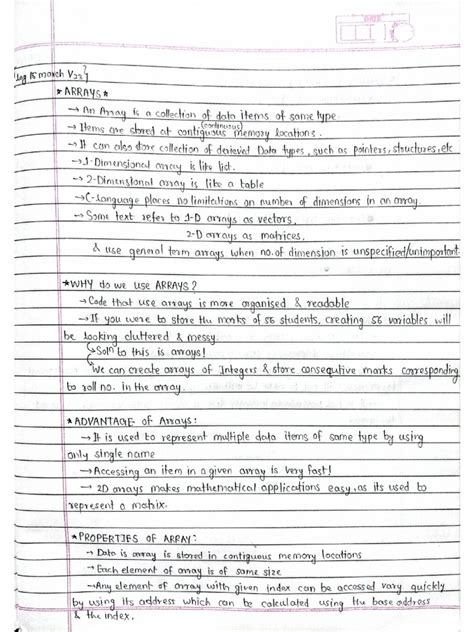 DATE
[Aug 15 march V22]
* ARRAYS *
→ An Array is a collection of data items of same type.
(continuous)
→ Items are stored at contiguous memory locations.
→ It can also store collection of derieved Data types, such as pointers, structures, etc
→ 1-Dimensional array is like list.
→ 2-Dimensional array is like a table
→ C-Language places no limitations on number of dimensions in an array.
→ Some text refer to 1-D arrays as vectors,
2-D arrays as matrices,
& use general term arrays when no. of dimension is unspecified/unimportant.
* WHY do we use ARRAYS?
→ Code that use arrays is more organised & readable
→ If you were to store the marks of 56 students, creating 56 variables will
be looking cluttered & messy.
↳ Soln to this is arrays!
We can create arrays of Integers & store consequtive marks corresponding
to roll no. in the array.
* ADVANTAGE of Arrays:
→ It is used to represent multiple data items of same type by using
only single name
→ Accessing an item in a given array is very fast!
→ 2D arrays makes mathematical applications easy, as its used to
represent a matrix.
* PROPERTIES OF ARRAY:
→ Data is array is stored in contiguous memory locations
→ Each element of array is of same size
→ Any element of array with given index can be accessed vary quickly
by using its address which can be calculated using the base address
& the index.